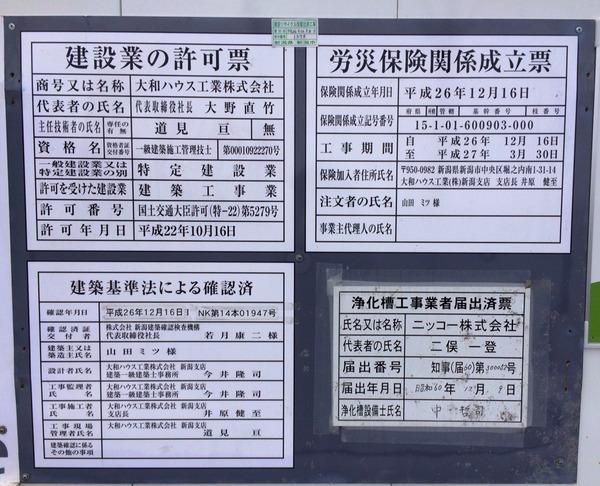 建設業の許可票
商号又は名称 大和ハウス工業株式会社
代表者の氏名 代表取締役社長 大野直竹
主任技術者の氏名 専任の有無 道見 亘 無
資格名 資格者証交付番号 一級建築施工管理技士 第00010922270号
一般建設業又は特定建設業の別 特定建設業
許可を受けた建設業 建築工事業
許可番号 国土交通大臣許可(特-22)第5279号
許可年月日 平成22年10月16日
労災保険関係成立票
保険関係成立年月日 平成26年12月16日
保険関係成立記号番号 府県 所掌 管轄 基幹番号 枝番号
15-1-01-600903-000
工事期間 自 平成26年 12月 16日
至 平成27年 3月 30日
保険加入者住所氏名 〒950-0982 新潟県新潟市中央区堀之内南1-31-14
大和ハウス工業(株)新潟支店 支店長 井原 健至
注文者の氏名 山田 ミツ 様
事業主代理人の氏名
建築基準法による確認済
確認年月日 平成26年12月16日 NK第14本01947号
確認済証交付者 株式会社 新潟建築確認検査機構
代表取締役社長 若月康二様
建築主又は築造主氏名 山田ミツ様
設計者氏名 大和ハウス工業株式会社 新潟支店
一級建築士事務所 今井隆司
工事監理者氏名 大和ハウス工業株式会社 新潟支店
一級建築士事務所 今井隆司
工事施工者氏名 大和ハウス工業株式会社 新潟支店
支店長 井原健至
工事現場管理者氏名 大和ハウス工業株式会社 新潟支店
道見 亘
建築確認に係るその他の事項
浄化槽工事業者届出済票
氏名又は名称 ニッコー株式会社
代表者の氏名 二俣一登
届出番号 知事(届60)第300082号
届出年月日 昭和60年12月9日
浄化槽設備士氏名 中 哲司